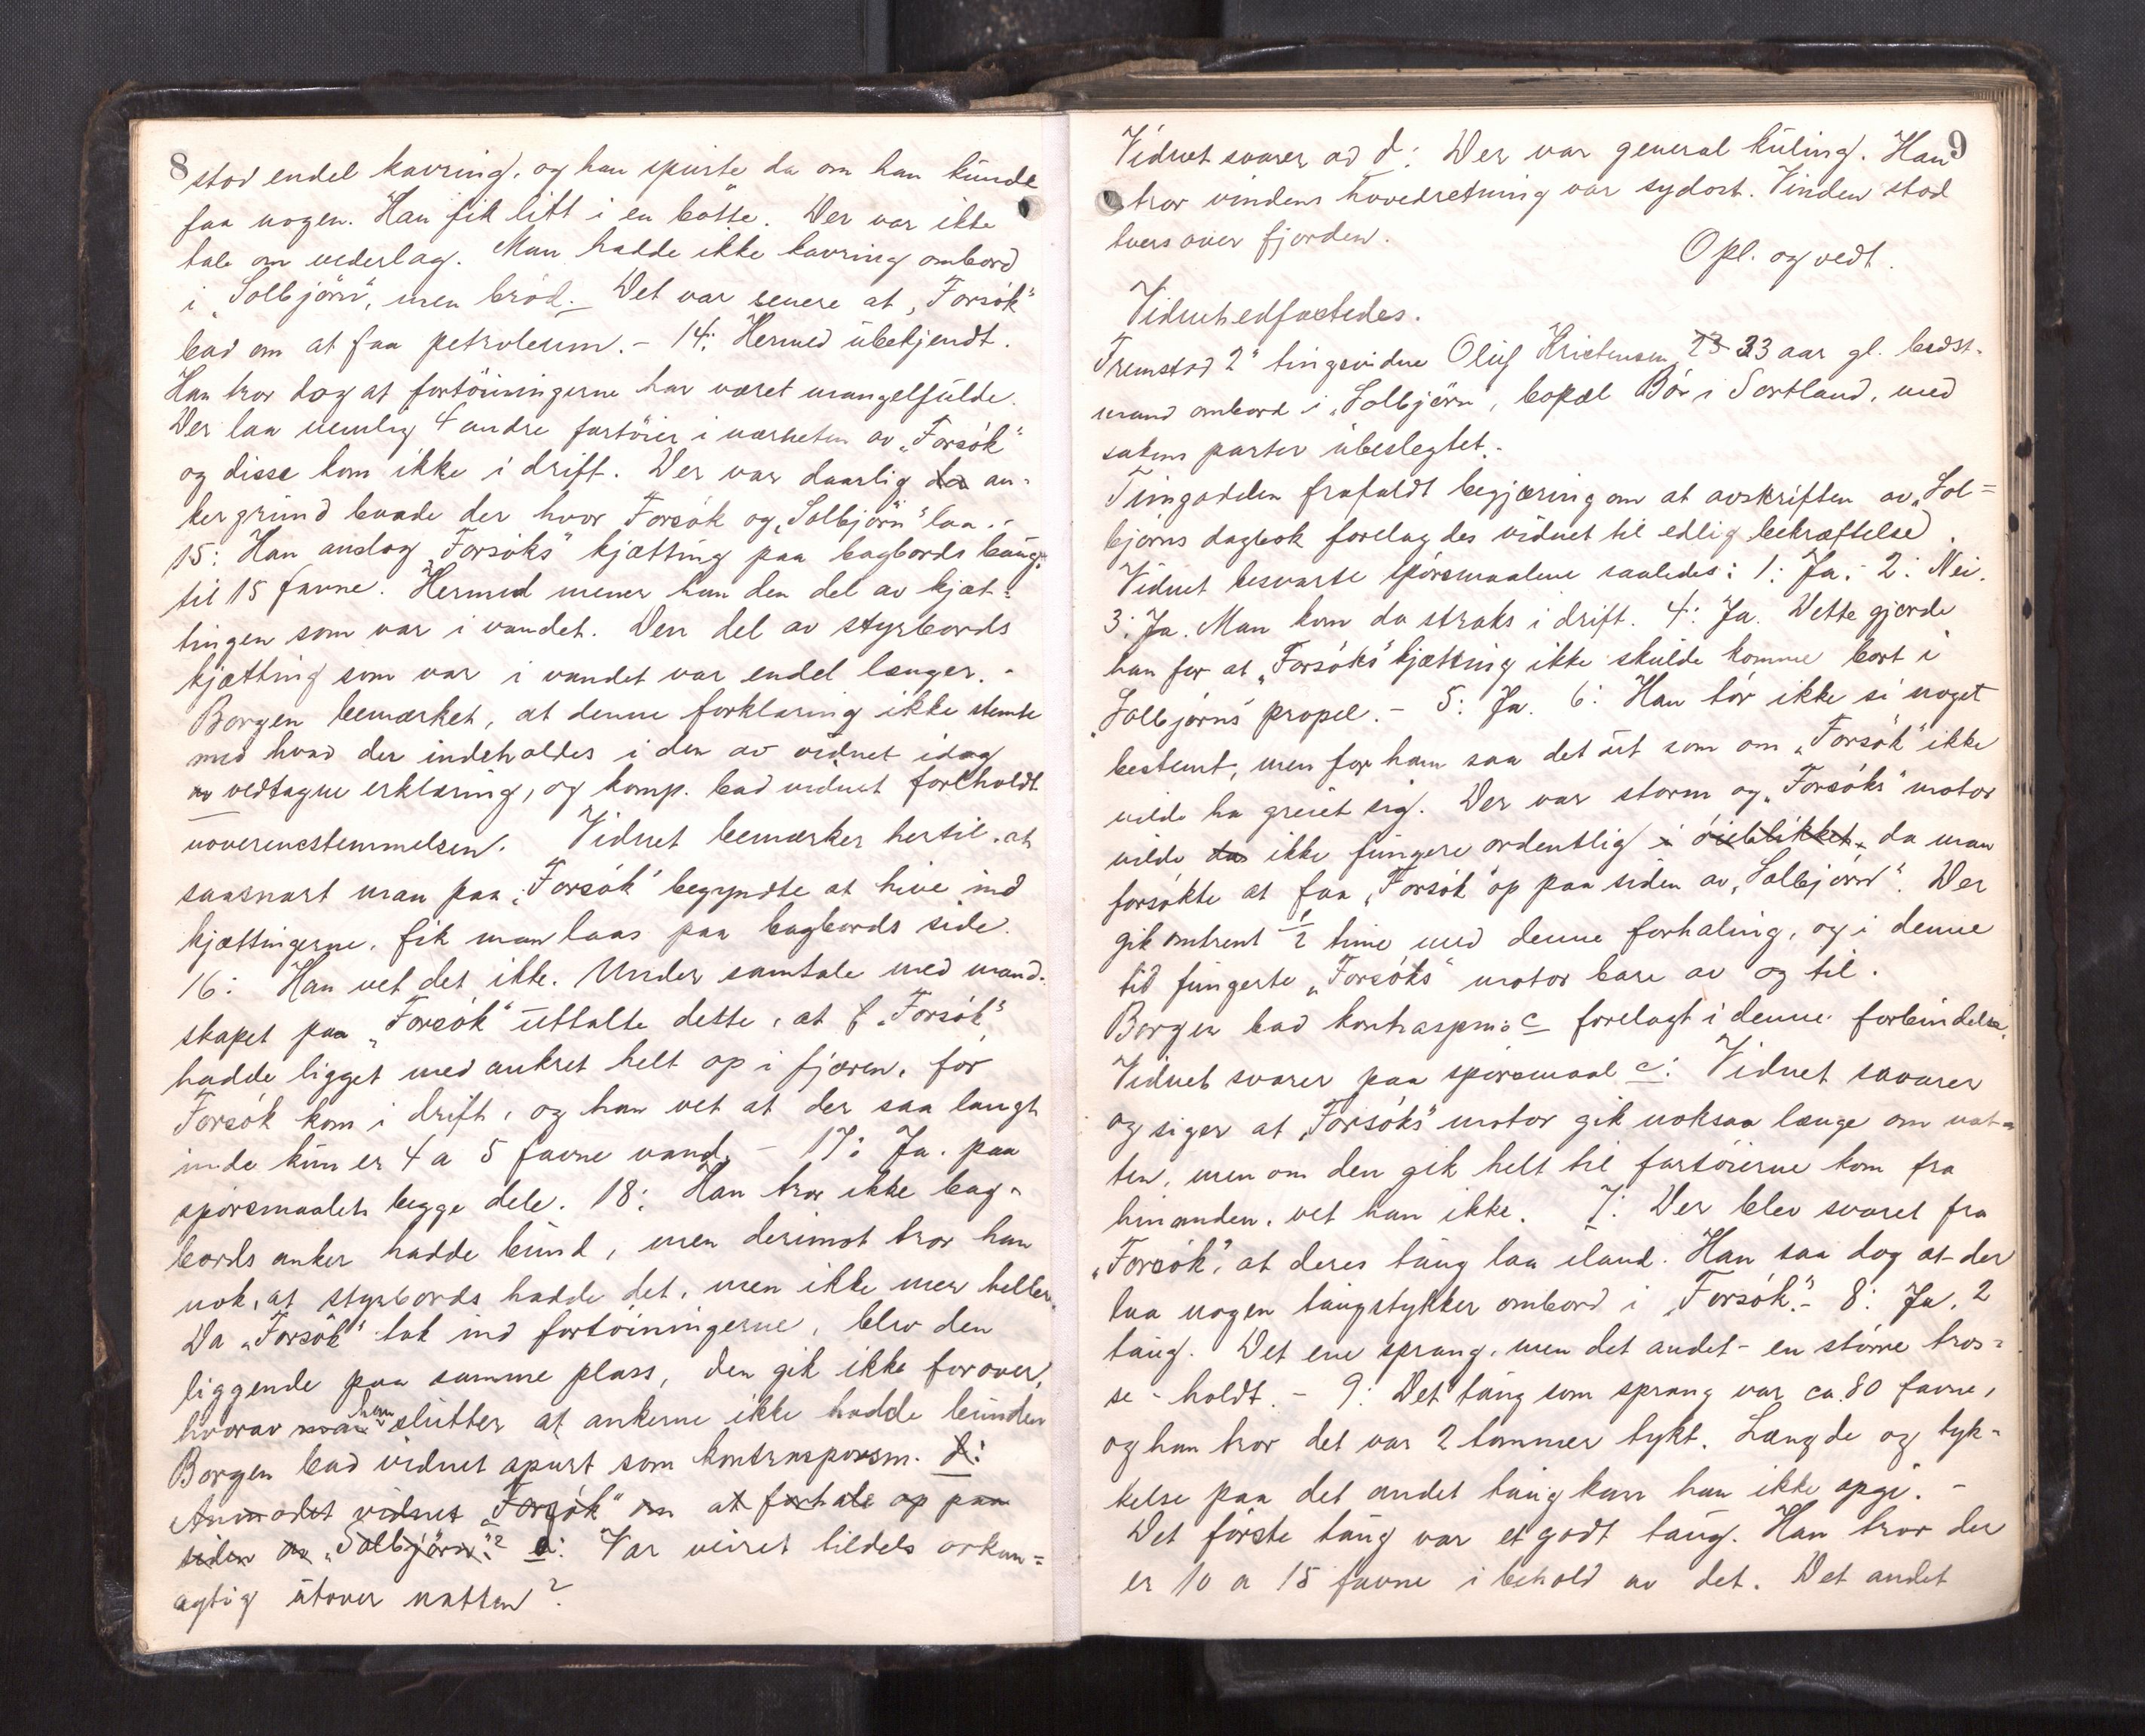 8
stod endel kavring, og han spurte da om han kunde
faa nogen. Han fik litt i en bøtte. Der var ikke
tale om vederlag. Man hadde ikke kavring ombord
i „Solbjørn", men brød. – Det var senere at „Forsøk"
bad om at faa petroleum. – 14: Hermed ubekjendt.
Han tror dog at fortøiningerne har været mangelfulde.
Der laa nemlig 4 andre fartøier i nærheten av „Forsøk"
og disse kom ikke i drift. Der var daarlig da an-
kergrund baade der hvor Forsøk og „Solbjørn" laa. –
15: Han anslog „Forsøks" kjætting paa bagbords baug
til 15 favne. Hermed mener han den del av kjæt-
tingen som var i vandet. Den del av styrbords
kjætting som var i vandet var endel længer. –
Borgen bemærket, at denne forklaring ikke stemte
med hvad der indeholdes i den av vidnet idag
av vedtagne erklæring, og komp. bad vidnet foreholdt
uoverensstemmelsen. Vidnet bemærker hertil, at
saasnart man paa „Forsøk" begyndte at hive ind
kjættingerne, fik man laas paa bagbords side.
16: Han vet det ikke. Under samtale med mand-
skapet paa „Forsøk" uttalte dette, at „Forsøk"
hadde ligget med ankret helt op i fjæren, før
Forsøk kom i drift, og han vet at der saa langt
inde kun er 4 a 5 favne vand. – 17: Ja. paa
spørsmaalets begge dele. 18: Han tror ikke bag-
bords anker hadde bund, men derimot tror han
nok, at styrbords hadde det, men ikke mer heller.
Da „Forsøk" tok ind fortøiningerne, blev den
liggende paa samme plass, den gik ikke forover,
hvorav man han slutter at ankerne ikke hadde bunden
Borgen bad vidnet spurt som kontraspørsm. d:
Anmodet vidnet „Forsøk" om at forhale op paa
siden av „Solbjørn"? d: Var veiret tildels orkan-
agtig utover natten?
9
Vidnet svarer ad d: Der var general kuling. Han
tror vindens hovedretning var sydost. Vinden stod
tvers over fjorden.
Opl. og vedt.
Vidnet edfæstedes.
Fremstod 2" tingsvidne Oluf Kristensen, 23 33 aar gl. bedst-
mand ombord i „Solbjørn", bopæl Bø i Sortland, med
sakens parter ubeslegtet. –
Tinngadden frafaldt begjæring om at avskriften av „Sol-
bjørns dagbok forelagdes vidnet til edlig bekræftelse.
Vidnet besvarte spørsmaalene saaledes: 1: Ja. – 2: Nei.
3: Ja. Man kom da straks i drift. 4: Ja. Dette gjorde
han for at „Forsøks" kjætting ikke skulde komme bort i
„Solbjørns" propel. – 5: Ja. 6: Han tør ikke si noget
bestemt, men for ham saa det ut som om „Forsøk" ikke
vilde ha greiet sig. Der var storm og „Forsøks" motor
vilde da ikke fungere ordentlig i øieblikket, da man
forsøkte at faa „Forsøk" op paa siden av „Solbjørn". Der
gik omtrent 1/2 time med denne forhaling, og i denne
tid fungerte „Forsøks" motor bare av og til.
Borgen bad kontraspm: c forelagt i denne forbindelse.
Vidnet svarer paa spørsmaal c: Vidnet savarer
og siger at „Forsøks" motor gik noksaa længe om nat-
ten, men om den gik helt til fartøierne kom fra
hinanden, vet han ikke. 7: Der blev svaret fra
„Forsøk", at deres taug laa iland. Han saa dog at der
laa nogen taugstykker ombord i „Forsøk". – 8: Ja. 2
taug. Det ene sprang, men det andet – en større tros-
se – holdt. – 9: Det taug som sprang var ca. 80 favne,
og han tror det var 2 tommer tykt. Længde og tyk-
kelse paa det andet taug kan han ikke opgi. –
Det første taug var et godt taug. Han tror der
er 10 a 15 favne i behold av det. Det andet